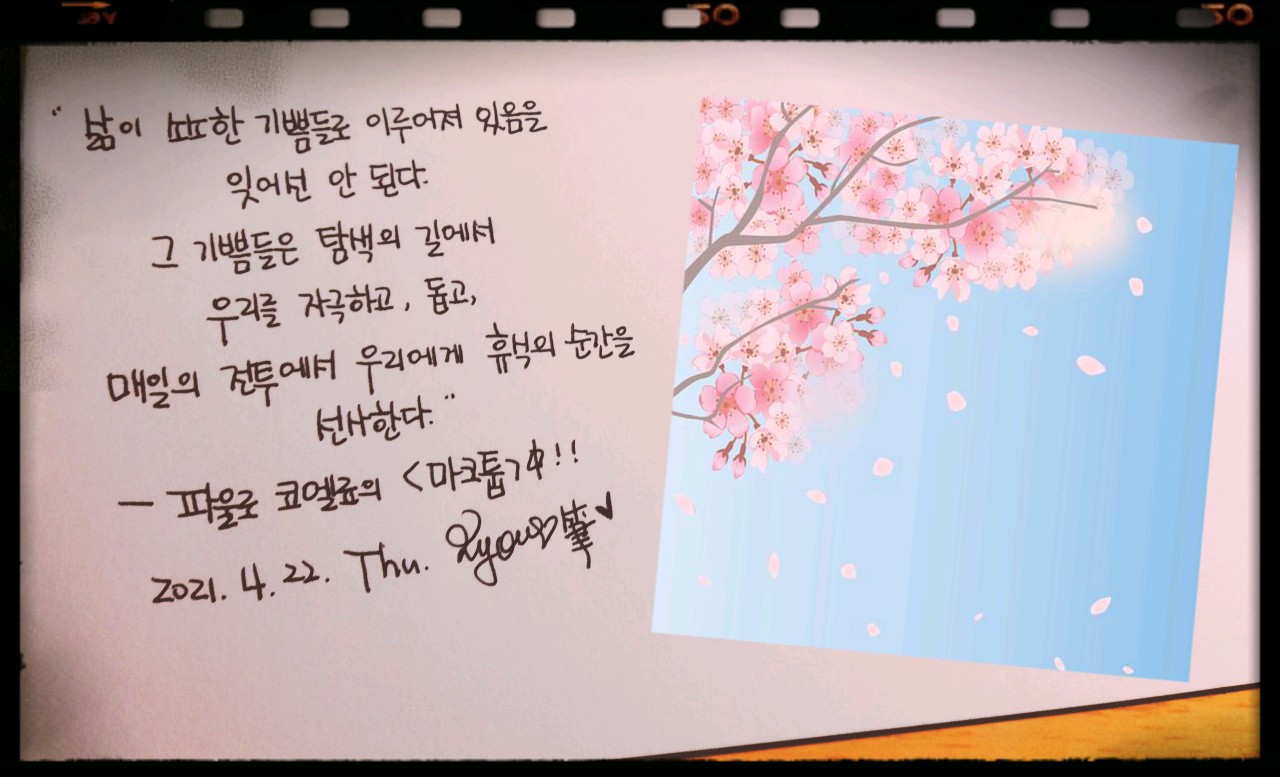 50 50
"삶이 또한 기쁨들로 이루어져 있음을
잊어선 안 된다.
그 기쁨들은 탐색의 길에서
우리를 자극하고, 돕고,
매일의 전투에서 우리에게 휴식의 순간을
선사한다."
— 파울로 코엘료의 <마크툽> 中!!
2021. 4. 22. Thu. 筆♥